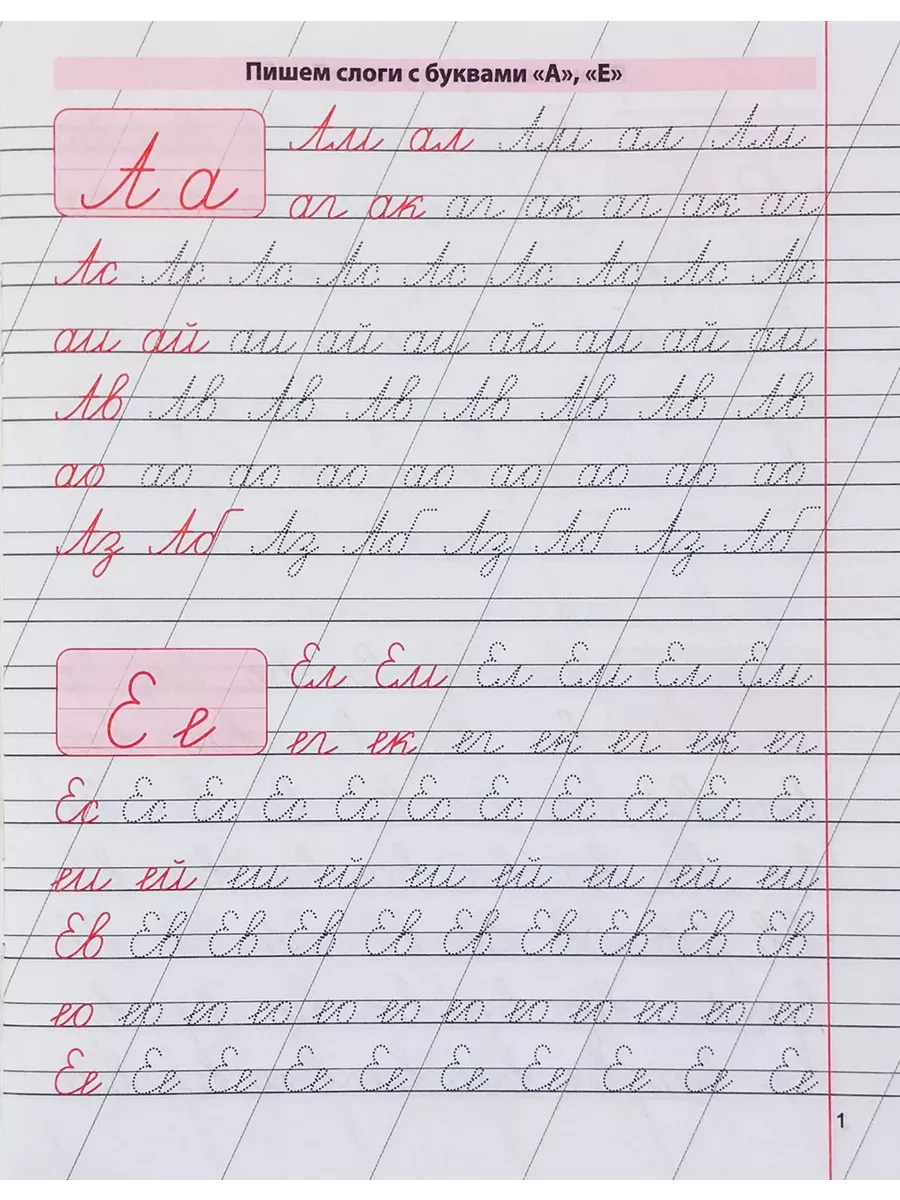 Пишем слоги с буквами «А», «Е»
А а
Ам ал Ам ал Ам
аг ак аг ак аг ак аг
Ас Ас Ас Ас Ас Ас Ас Ас Ас
аи ай аи ай аи ай аи ай аи
Ав Ав Ав Ав Ав Ав Ав Ав
ао ао ао ао ао ао ао ао ао
Аз Аб Аз Аб Аз Аб Аз Аб
Е е
Ел Ем Ел Ем Ел Ем
ег ек ег ек ег ек ег
Ес Ес Ес Ес Ес Ес Ес Ес Ес Ес Ес
еи ей еи ей еи ей еи ей еи
Ев Ев Ев Ев Ев Ев Ев Ев Ев Ев
ео ео ео ео ео ео ео ео ео ео ео ео
Ее Ее Ее Ее Ее Ее Ее Ее Ее Ее
1